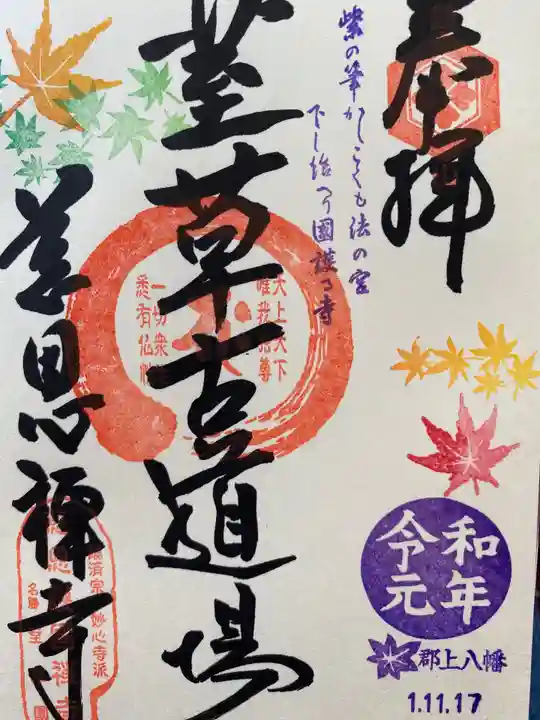 奉拝
紫の筆かしこくも法の宮
下し給へる國護る寺
荎草古道場
慈恩禅寺
天上天下
唯我独尊
一切衆生
悉有仏性
臨済宗妙心寺派
令和
元年
郡上八幡
1.11.17